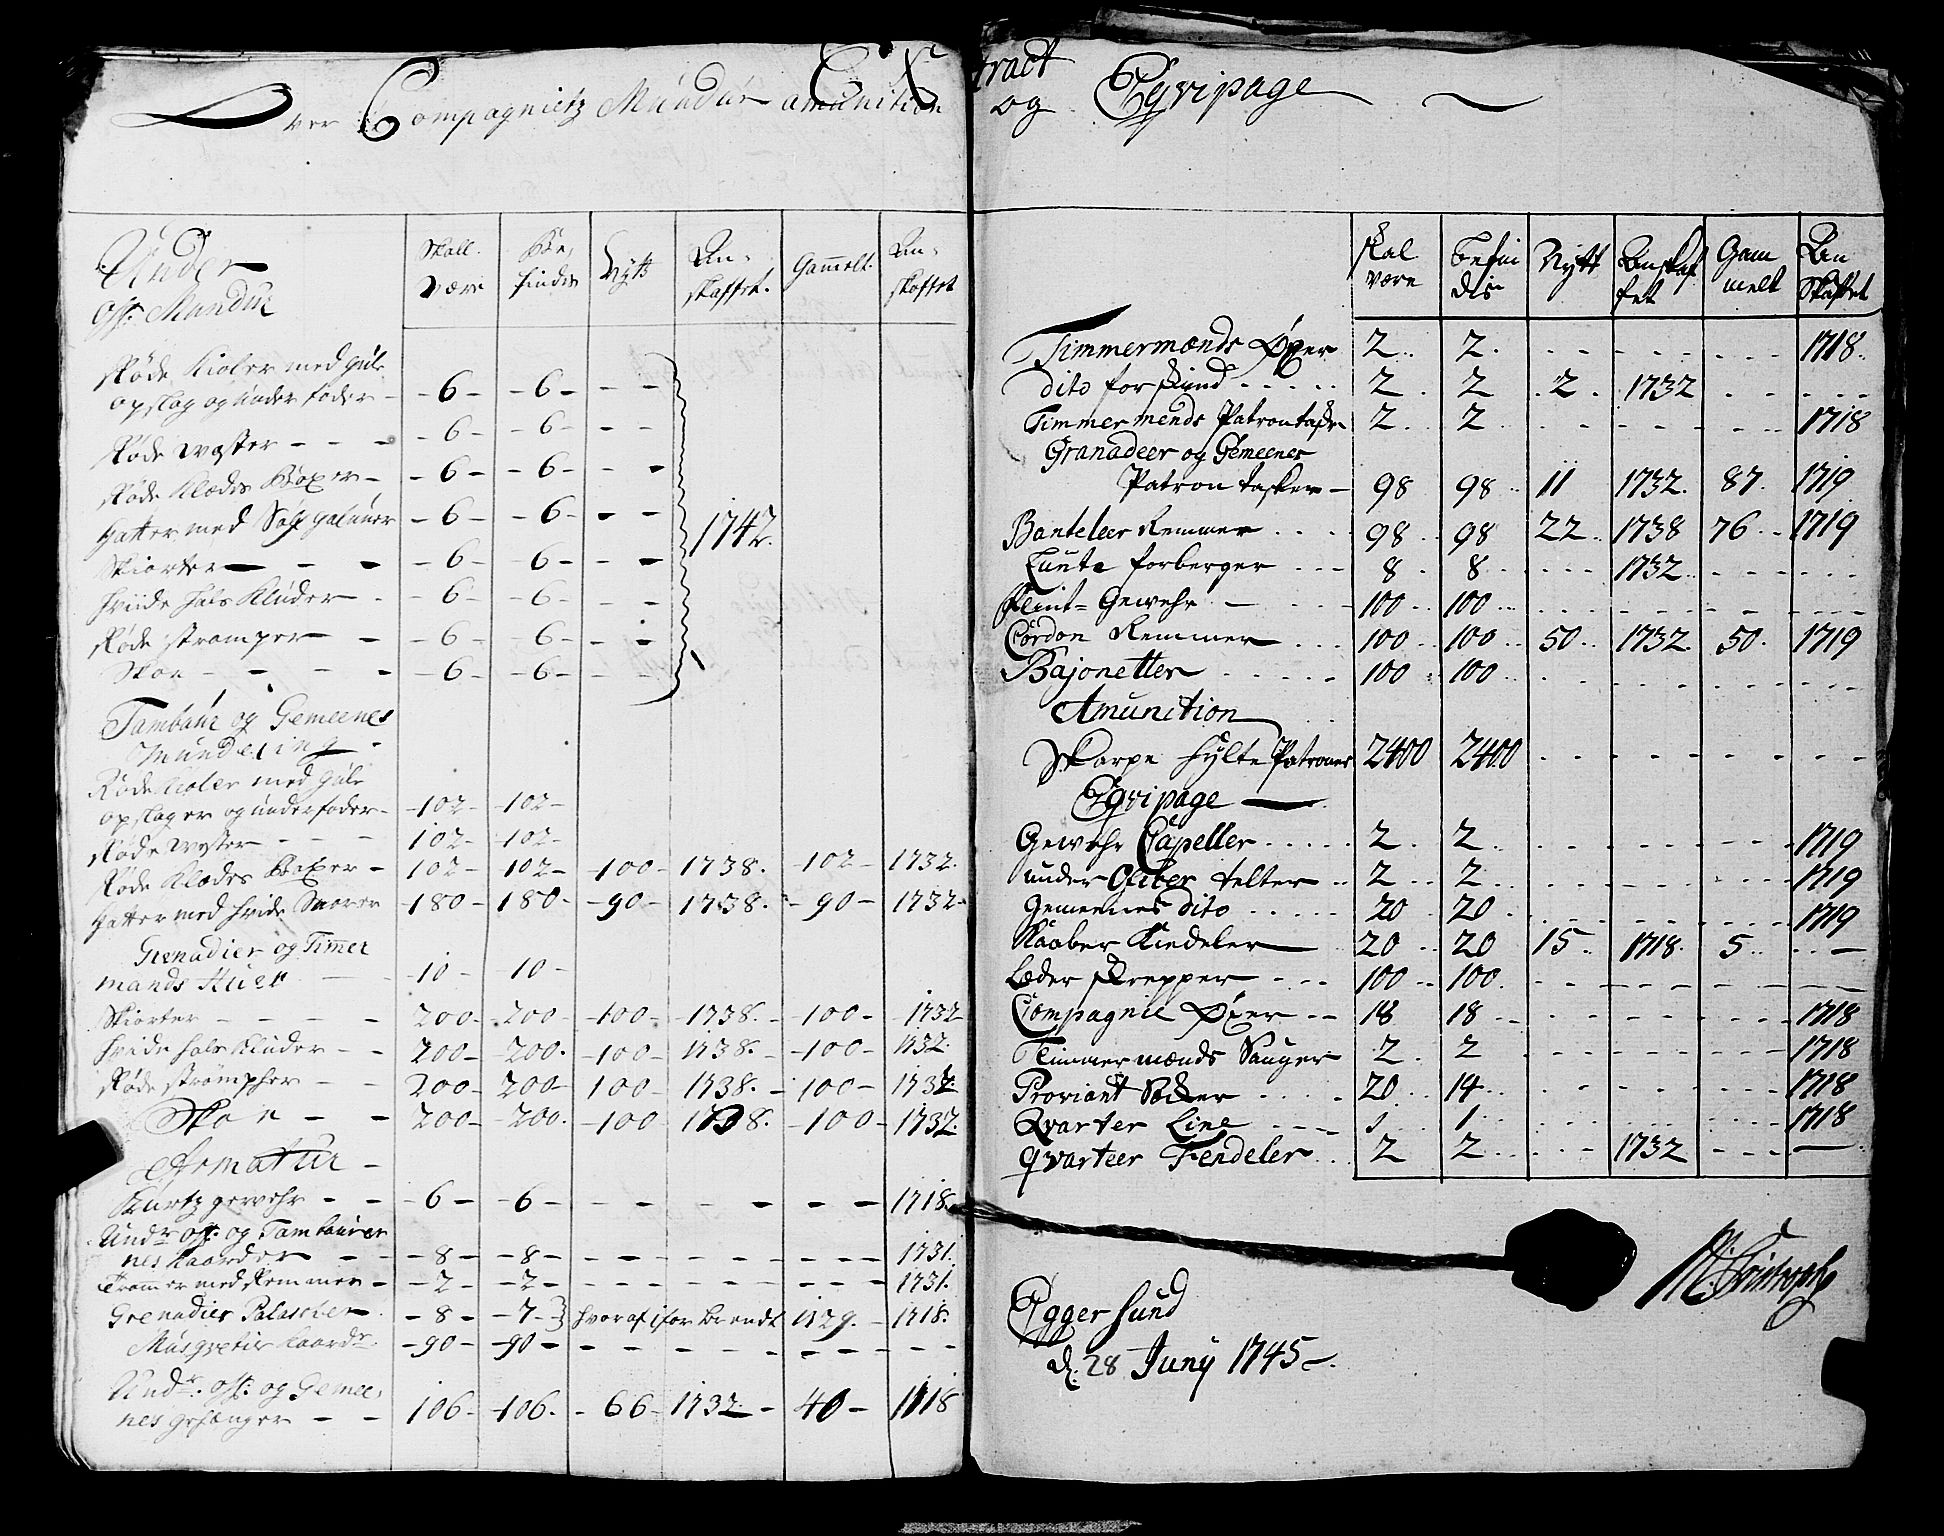 Extract
Over Compagnietz Mundur amunition og Eqvipage
Under | Skall | Be, | Nytt | An- | Gammelt. | An-
Off: Mundur | være | findes | | skaffet. | | skaffet
Røde Kioler med gule
opslag og under foder - 6 - 6 - -
Røde wæster - - - 6 - 6 - -
Røde Klædes Boxer - - 6 - 6 - -
Hatter med galuner - 6 - 6 - - 1742.
Skiorter - - - 6 - 6 - -
Hviide hals Kluder - - 6 - 6 - -
Røde strømper - - 6 - 6 - -
Skoe - - - - 6 - 6 - -
Tambour og Gemeenes
Mundering -
Røde Kioler med gule
opslager og underfoder - 102 - 102 -
Røde wæster - - - 102 - 102 -
Røde Klædes Boxer - 102 - 102 - 100 - 1738. - 102 - 1732.
Hatter med hvide Snorer - 180 - 180 - 90 - 1738. - 90 - 1732 -
Grenadier og Timer
mands Huer - - 10 - 10 -
Skiorter - - - - 200 - 200 - 100 - 1738. - 100 - 1732
Hvide hals Kluder - - 200 - 200. - 100 - 1738. - 100 - 1732.
Røde strømpher - - 200 - 200 - 100 - 1738. - 100 - 1732.
Skoe - - 200 - 200. - 100 - 1738. - 100 - 1732.
Armatur -
Kurtz gewehr - - 6 - 6 - - - - - - 1718.
Undr off: og Tambourer
nes Kaarder - - 8 - 8 - - - - - - - 1731.
Trommer med Remmer - 2 - 2 - - - - - - - 1731.
Grenadier Palasker - 8 - 7 - hvoraf i for brendt 1729. - 1718.
Musqvetir Kaardr - 90 - 90 - - - - - - - -
Undr. off: og Gemee,
nes gehænger - - 106 - 106. - 66 - 1732 - 40 - 1718
Skal | befin | Nytt | Anskaf | Gam | An
være | dis | | fet | melt | Skaffet
Timmermænds Øxer 2.. 2. - - - - - - 1718.
dito forskind ..... 2. 2 .2. 1732 . . . . .
Timmermends Patrontaske 2. 2 - - - - - - 1718
Granadeer og Gemeenes
Patron tasker - 98 98.. 11 1732. 87. 1719
Banteleer Remmer .... 98.. 98 22.. 1738 76.. 1719
Lunte forberger ... 8. 8... ... 1732.. - - - -
Flint= Gewehr - ... 100.. 100... - - - - - -
Cordon Remmer ... 100.. 100.. 50.. 1732. 50. 1719
Bajonetter ...... 100.. 100. . . - - - - - -
Amunition
Skarpe hylte Patroner 2400 2400 - - - - - - -
Eqvipage
Gewehr Capeller ..... 2. 2.. - - - - - - 1719
under Officer telter .. 2.. 2.. - - - - - - 1719
Gemeenes dito ..... 20. 20. - - - - - - 1719
Kaaber Kiedeler 20.. 20 15. 1718. 5.. .. -
Læder Skrepper - - - 100.. 100. - - - - - - - -
Compagnie Øxer - - 18 18.. - - - - - - 1718
Timmermænds Sauger 2. 2 - - - - - - 1718
Proviant Sæcker .... 20.. 14.. . - - - - - 1718
Qvarter Line - - - - 1. 1.. - - - - - - 1718
Qvarteer Fendeler .. 2 2.. . - - 1732 - - - -
Egger sund
d: 28 Juny 1745.